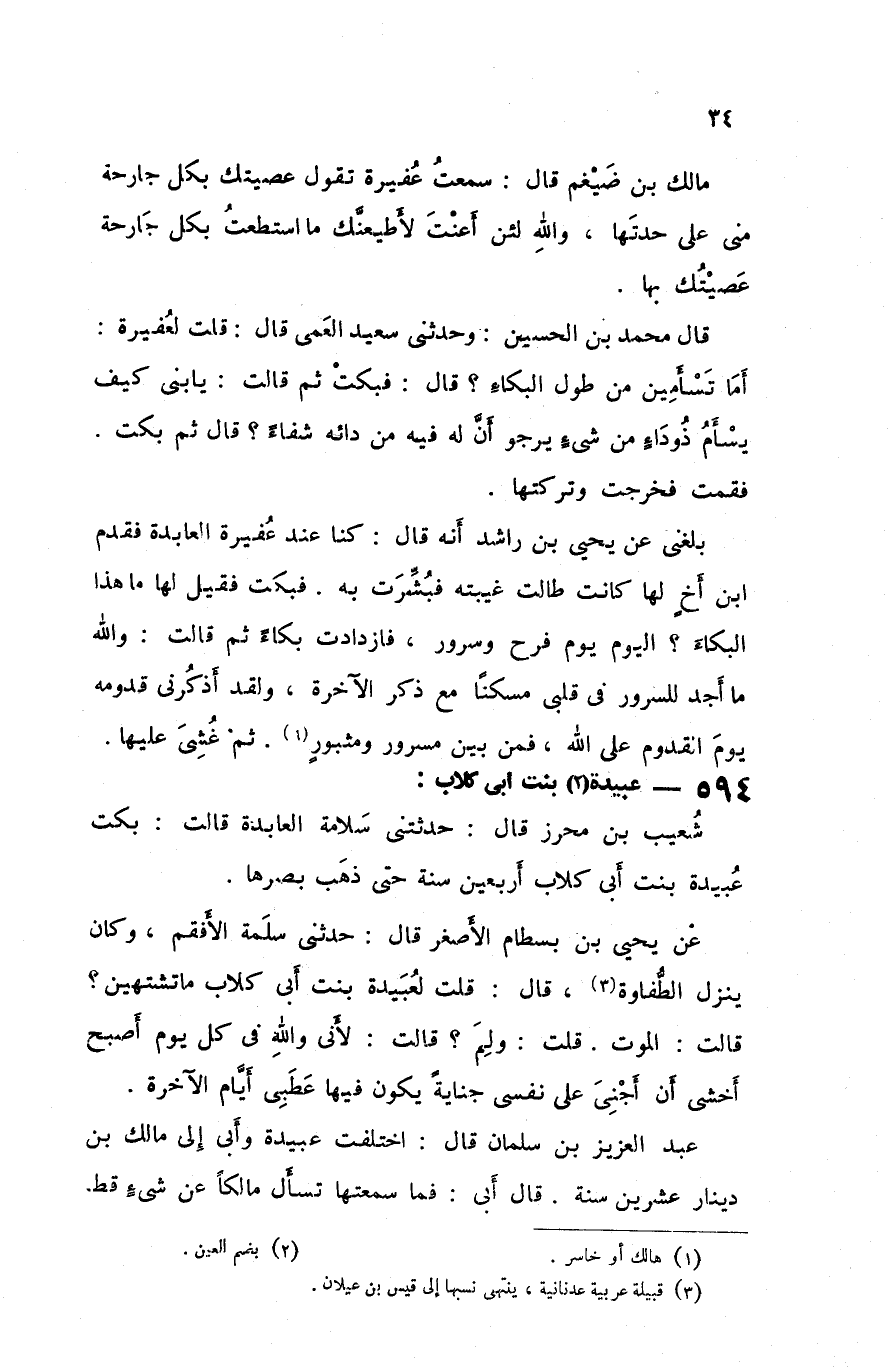 ٣٤
مالك بن ضَيْغم قال : سمعتُ عُفيرة تقول عصيتك بكل جارحة
منى على حدتَها ، واللهِ لئن أَعنْتَ لأَطيعنَّك ما استطعتُ بكل جَارحة
عَصيْتُك بها .
قال محمد بن الحسين : وحدثنى سعيد العَمى قال : قلت لعُفيرة :
أَمَا تَسْأَمِين من طول البكاءِ ؟ قال : فبكتْ ثم قالت : يابنى كيف
يسْأَمُ ذُودَاءٍ من شىءٍ يرجو أَنَّ له فيه من دائه شفاءً ؟ قال ثم بكت .
فقمت فخرجت وتركتها .
بلغنى عن يحيى بن راشد أَنه قال : كنا عند عُفيرة العابدة فقدم
ابن أَخٍ لها كانت طالت غيبته فبُشِّرَت به . فبكَت فقيل لها ما هذا
البكاءَ ؟ اليوم يوم فرح وسرور ، فازدادت بكاءً ثم قالت : والله
ما أَجد للسرور فى قلبى مسكنًا مع ذكر الآخرة ، ولقد أَذكُرنى قدومه
يومَ القدوم على الله ، فمن بين مسرور ومثبورٍ(١) . ثم غُشِىَ عليها .
٥٩٤ — عبيدة(٢) بنت ابى كلاب :
شُعيب بن محرز قال : حدثتنى سَلامة العابدة قالت : بكت
عُبيدة بنت أَبى كلاب أَربعين سنة حتى ذهَب بصرها .
عْن يحيى بن بسطام الأَصغر قال : حدثنى سلَمة الأَفقم ، وكان
ينزل الطُّفاوة(٣) ، قال : قلت لعُبَيدة بنت أَبى كلاب ماتشتهين ؟
قالت : الموت . قلت : ولِمَ ؟ قالت : لأَنى واللهِ فى كل يوم أَصبح
أَخشى أَن أَجْنِىَ على نفسى جنايةً يكون فيها عَطَبِى أَيَّام الآخرة .
عبد العزيز بن سلمان قال : اختلفت عبيدة وأَبى إلى مالك بن
دينار عشرين سنة . قال أَبى : فما سمعتها تسأَل مالكاً عن شىءٍ قط.
(١) هالك أو خاسر . (٢) بضم العين .
(٣) قبيلة عربية عدنانية ، ينتهى نسبها إلى قيس بن عيلان .